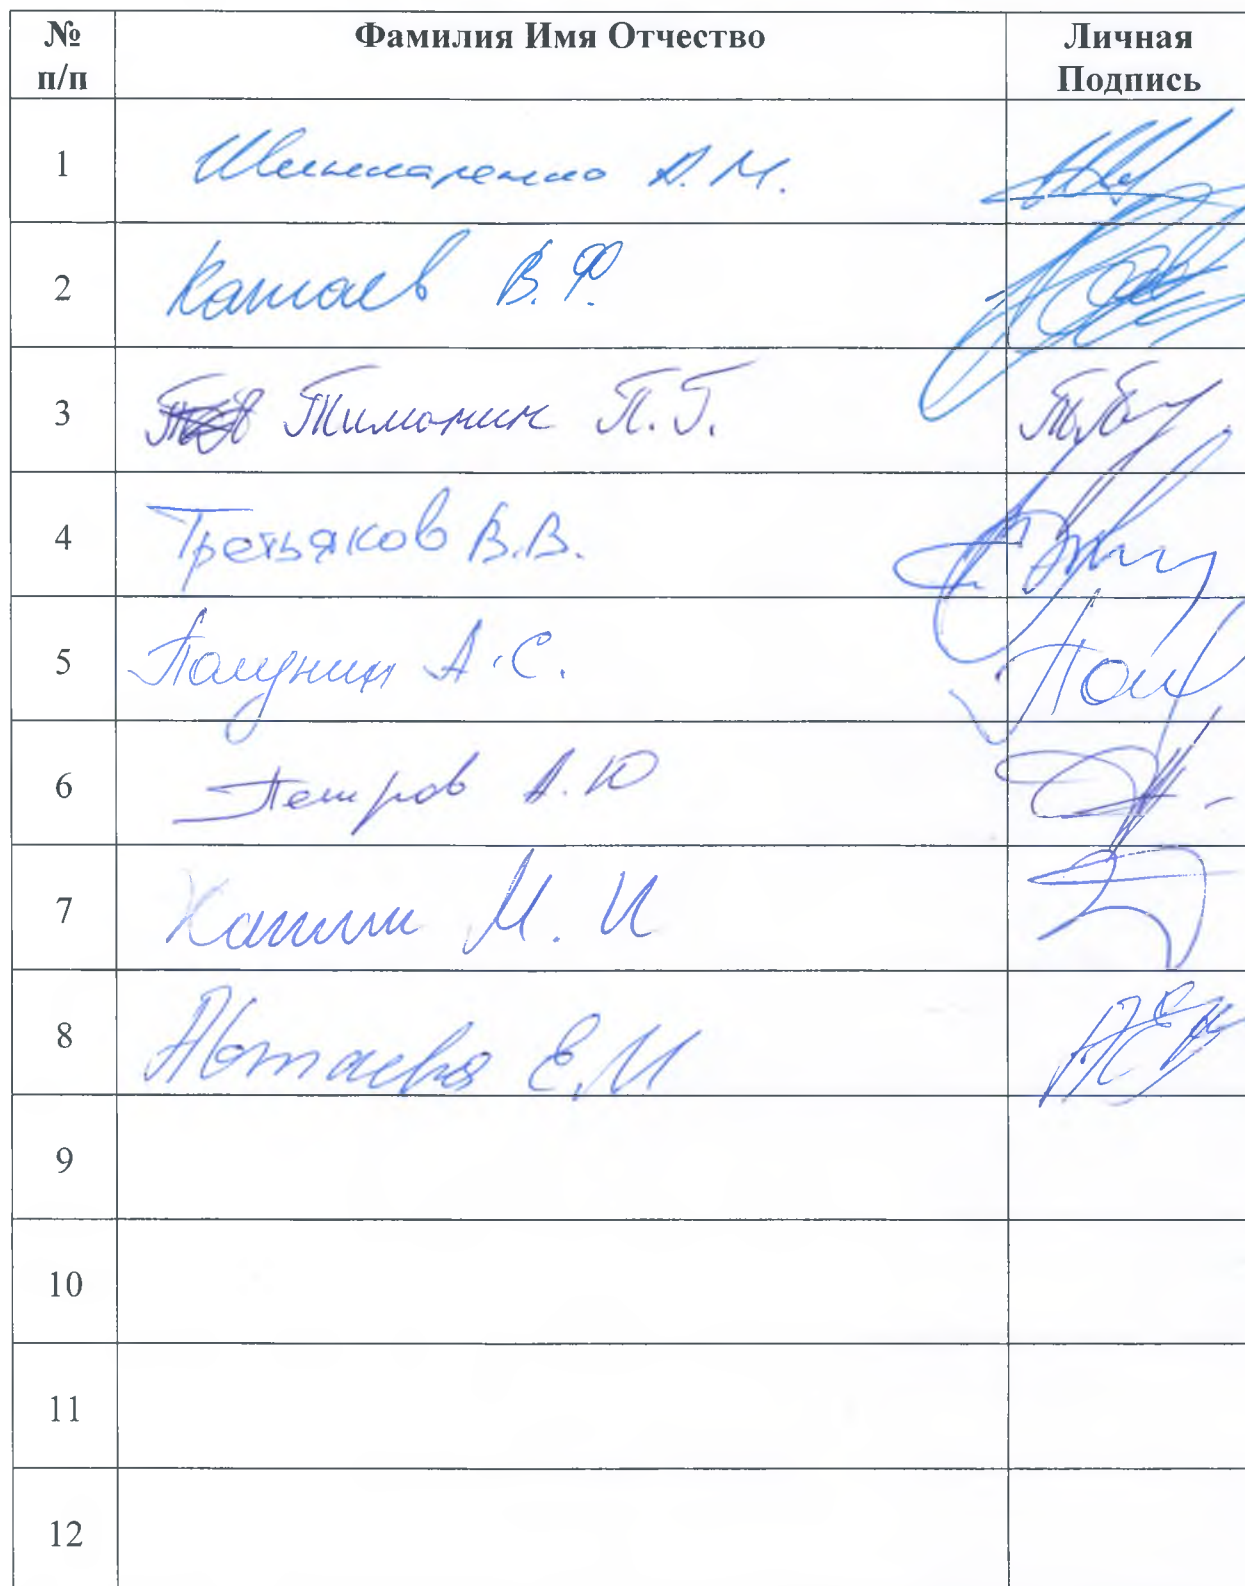 № п/п Фамилия Имя Отчество Личная Подпись
1 Шинкаренко А. М.
2 Катаев В. Ф.
3 Тиманин П. Г.
4 Третьяков В. В.
5 Полунин А. С.
6 Петров А. Ю
7 Ханин М. И
8 Абтаева Е. И
9
10
11
12